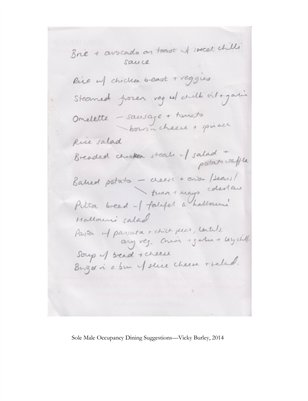 Brie + avocado on toast w/ sweet chilli
sauce
Rice w/ chicken breast + veggies
Steamed frozen veg w/ chilli oil + garlic
Omelette – sausage + tomato
cheese + spinach
Rice salad
Breaded chicken steak w/ salad +
potato waffle
Baked potato – cheese + onion / beans /
tuna + mayo coleslaw
Pitta bread w/ falafel + halloumi
Halloumi salad
Pasta w/ passata + chick peas, lentils
any veg. Onion + garlic +
Soup w/ bread + cheese
Burger in a bun w/ slice cheese + salad
Sole Male Occupancy Dining Suggestions—Vicky Burley, 2014